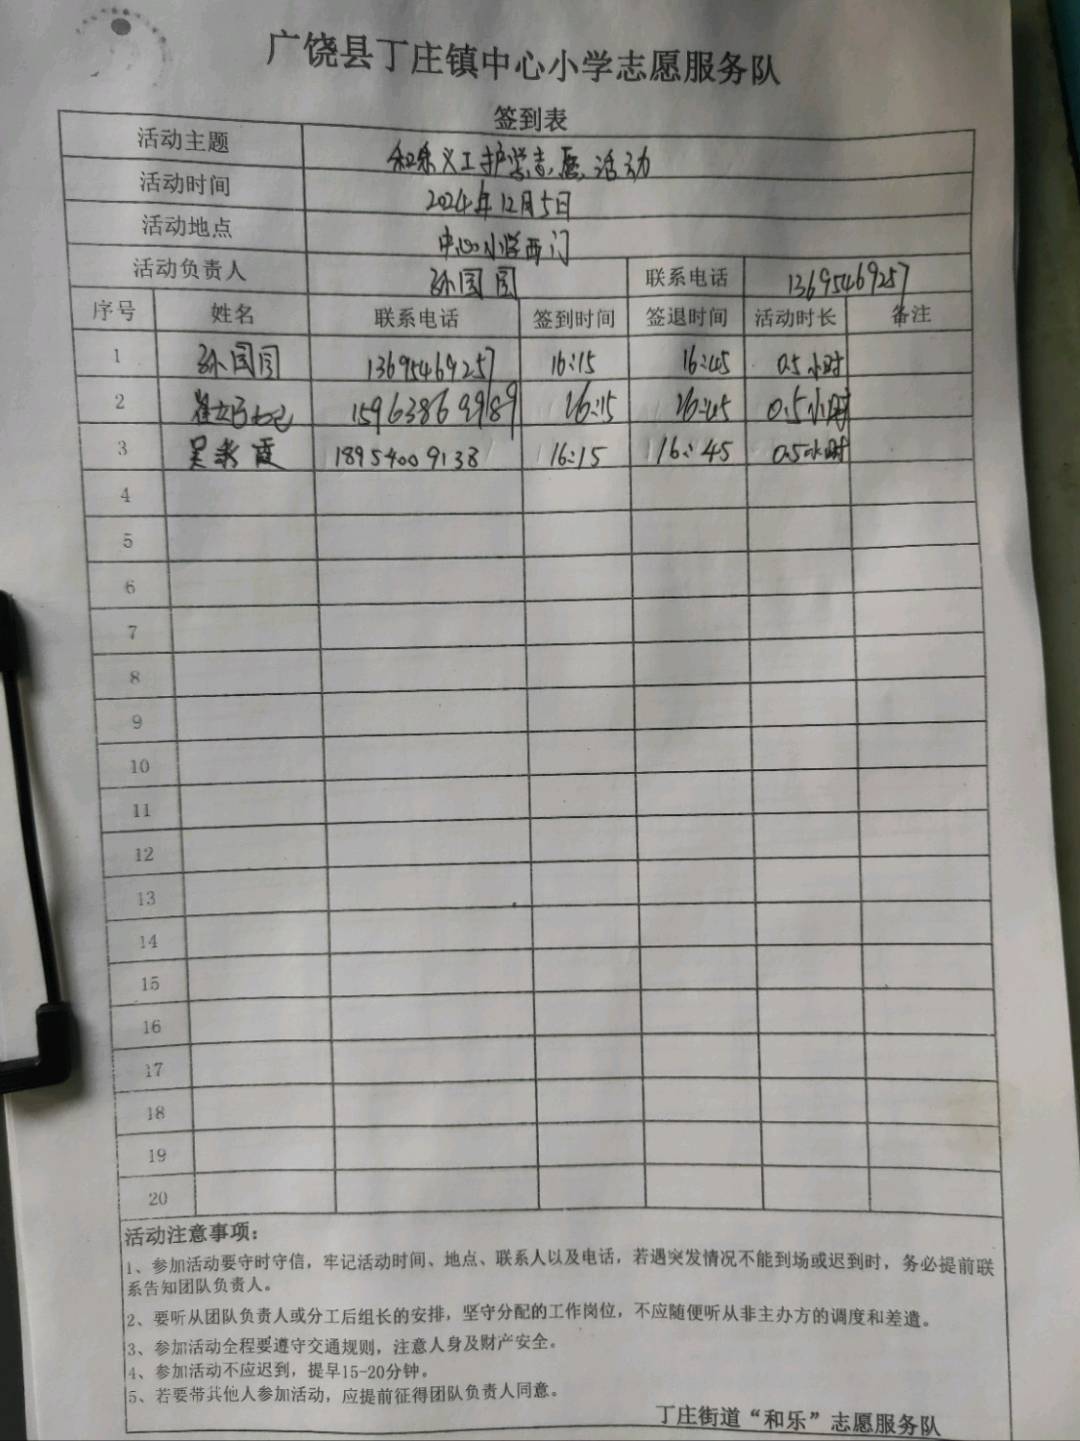 广饶县丁庄镇中心小学志愿服务队
签到表
活动主题 和乐义工护学志愿活动
活动时间 2024年12月5日
活动地点 中心小学西门
活动负责人 孙园园 联系电话 13695469257
序号 姓名 联系电话 签到时间 签退时间 活动时长 备注
1 孙园园 13695469257 16:15 16:45 0.5小时
2 15963869989 16:15 16:45 0.5小时
3 吴霞 18954009138 16:15 16:45 0.5小时
4
5
6
7
8
9
10
11
12
13
14
15
16
17
18
19
20
活动注意事项：
1、参加活动要守时守信，牢记活动时间、地点、联系人以及电话，若遇突发情况不能到场或迟到时，务必提前联
系告知团队负责人。
2、要听从团队负责人或分工后组长的安排，坚守分配的工作岗位，不应随便听从非主办方的调度和差遣。
3、参加活动全程要遵守交通规则，注意人身及财产安全。
4、参加活动不应迟到，提早15-20分钟。
5、若要带其他人参加活动，应提前征得团队负责人同意。
丁庄街道“和乐”志愿服务队